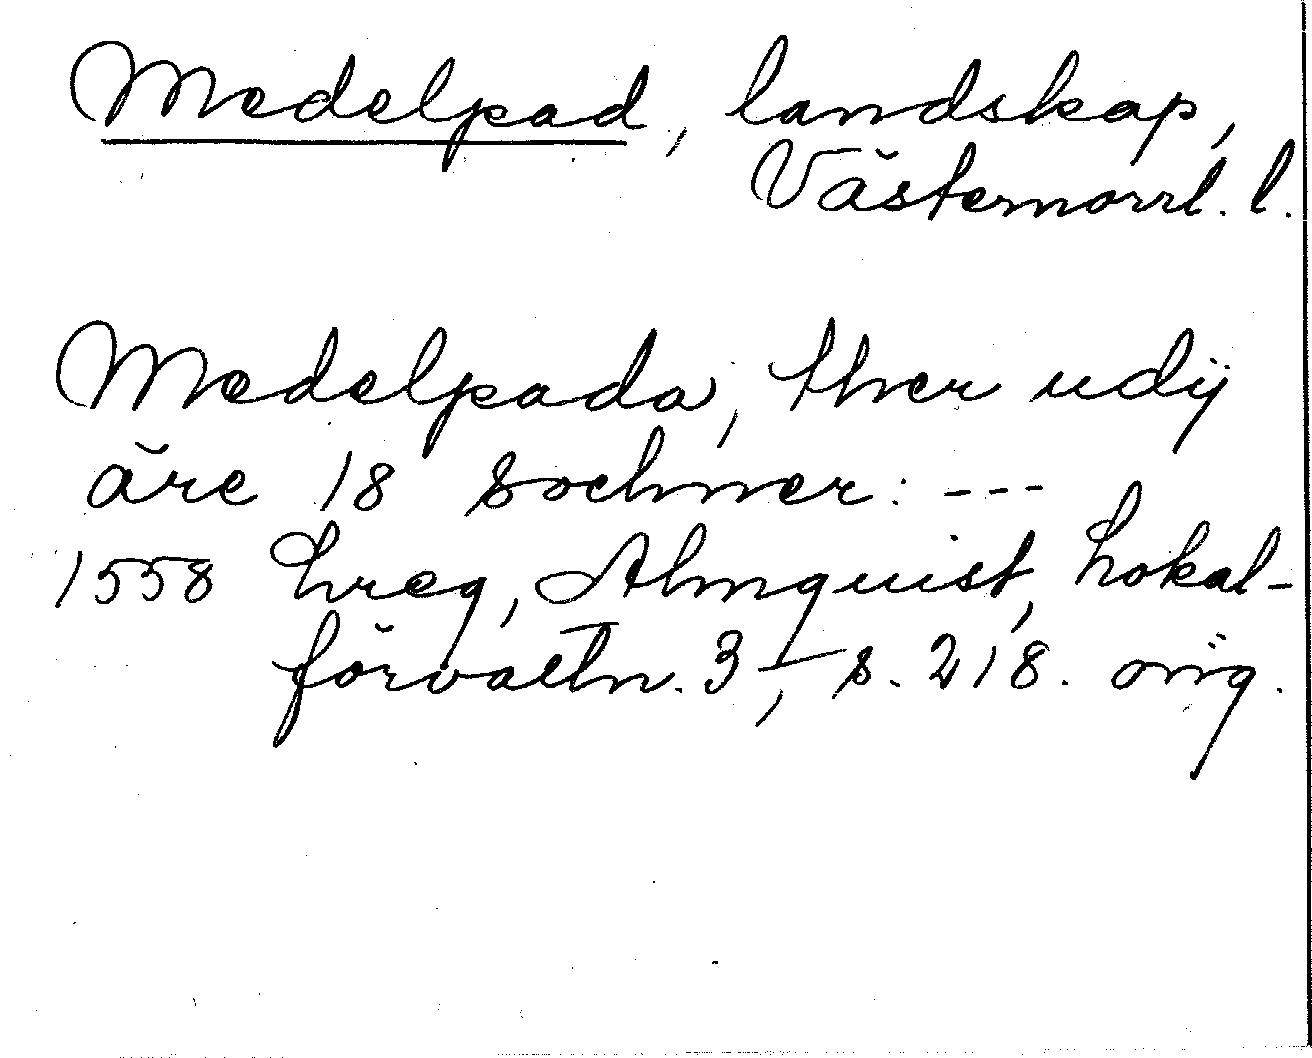 Medelpad, landskap,
Västernorrl. l.
Medelpada, ther udij
äre 18 sochner: ---
1558 Lreg, Almquist, Lokal-
förvaltn. 3, s. 218. orig.